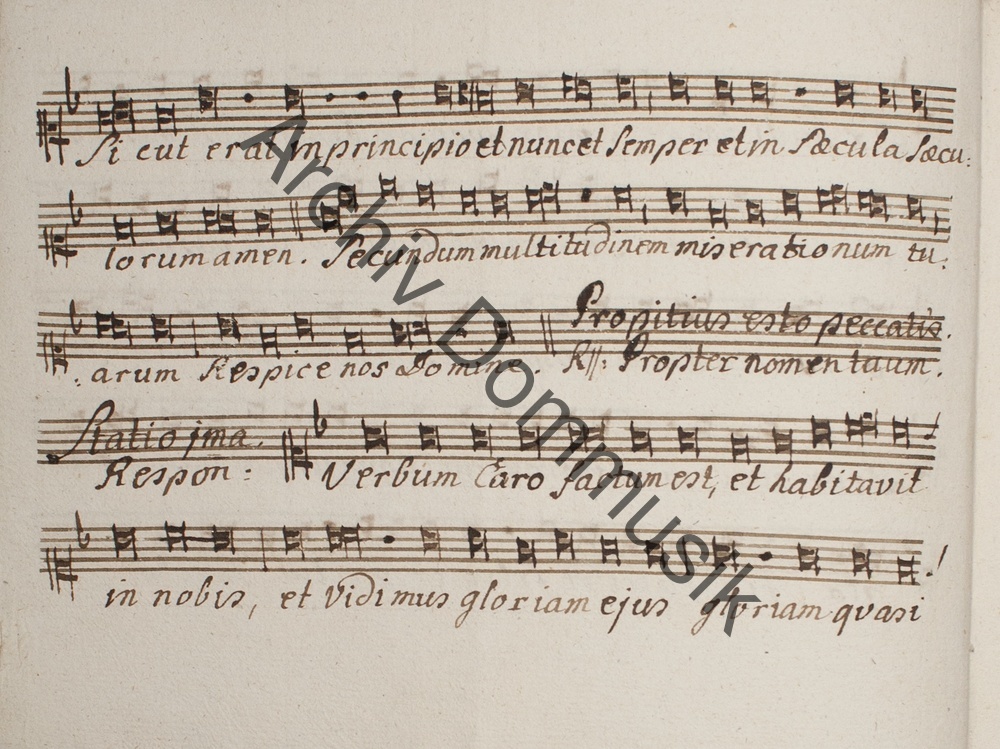 Si cut erat in principio et nunc et Semper et in Sæcula Sæcu:
lorum amen. Secundum multitudinem miserationum tu:
Propitius esto peccatis.
:arum Respice nos Domine. R//: Propter nomen tuum.
Statio jma.
Respon: Verbum Caro factum est, et habitavit
in nobis, et Vidimus gloriam ejus gloriam quasi
Archiv Dommusik